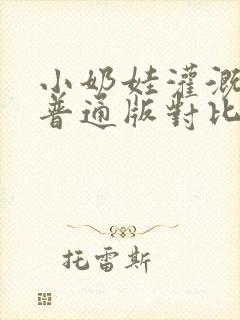 小奶娃灌溉
普通版對比
托雷斯